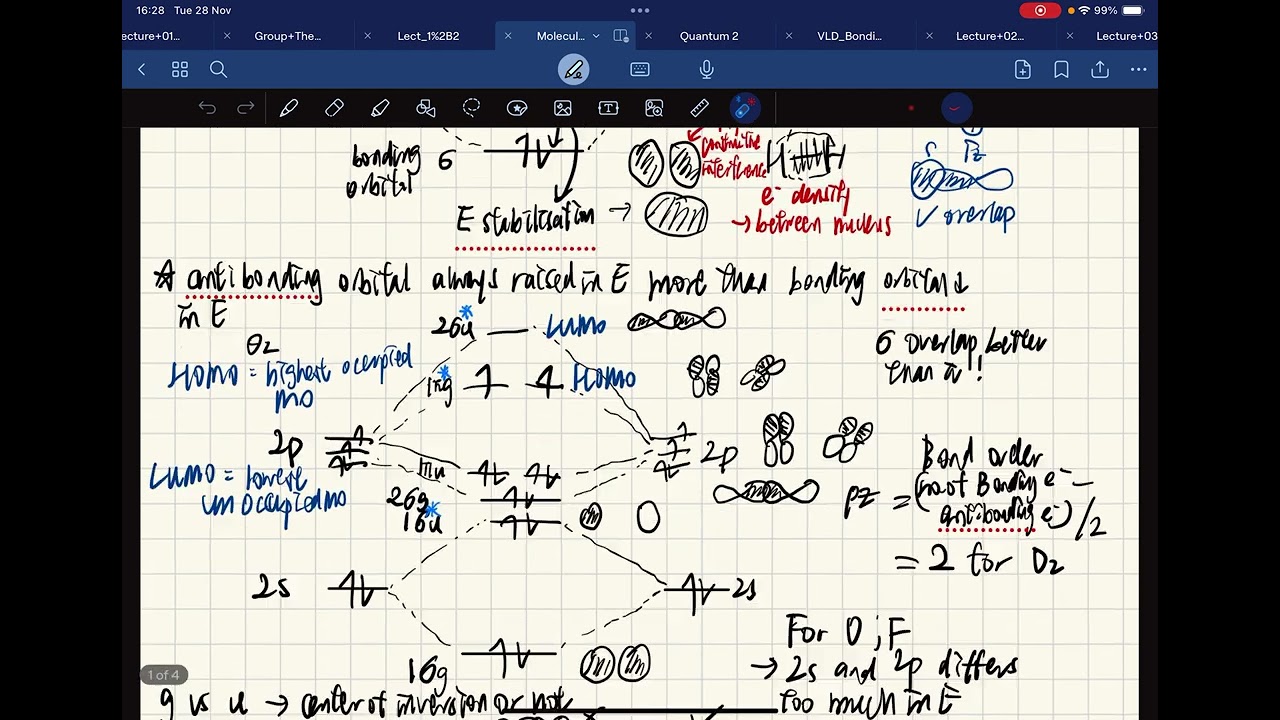 16:28 Tue 28 Nov
99%
ecture+01...
Group+The...
Lect_1%2B2
Molecul...
Quantum 2
VLD_Bondi...
Lecture+02...
Lecture+03
bonding
orbital
σ
interference
e⁻ density
→ between nucleus
E stabilisation →
s
Pz
✓ overlap
☆ antibonding orbital always raised in E more than bonding orbital ↓
in E
2σu* LUMO
O2
HOMO = highest occupied
MO
1πg* HOMO
σ overlap better
than π!!
2p
2p
LUMO = lowest
unoccupied MO
1πu
2σg
1σu*
Pz
Bond order
= (no of Bonding e⁻ –
antibonding e⁻)/2
= 2 for O2
2s
2s
1σg
For O ; F
→ 2s and 2p differs
too much in E
1 of 4
g vs u → center of inversion or not